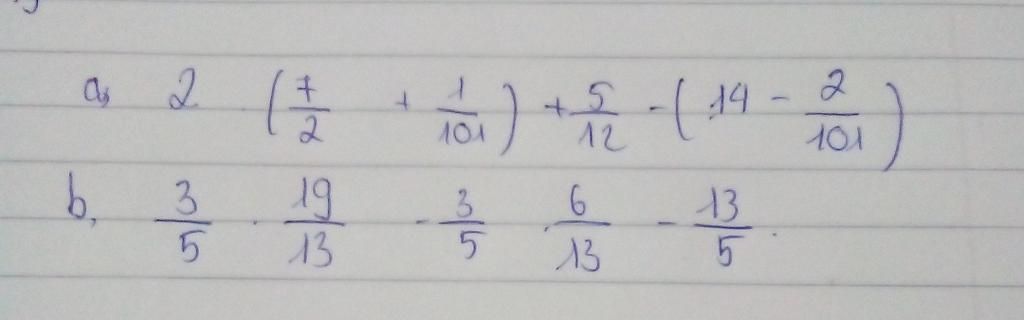 a, 2 . (7/2 + 1/101) + 5/12 - (14 - 2/101)
b, 3/5 . 19/13 - 3/5 . 6/13 - 13/5 .